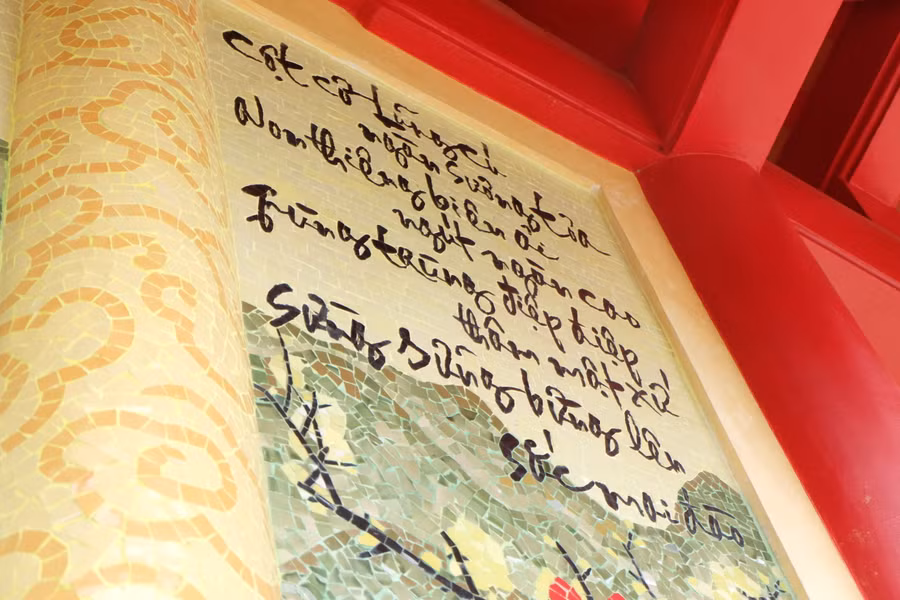 Cột cờ Lũng Cú
ngàn sương tỏa
Non thiêng biên ải
ngút ngàn cao
Trùng trùng điệp điệp
thăm mật xứ
Sừng sững bừng lên
sắc mai đào